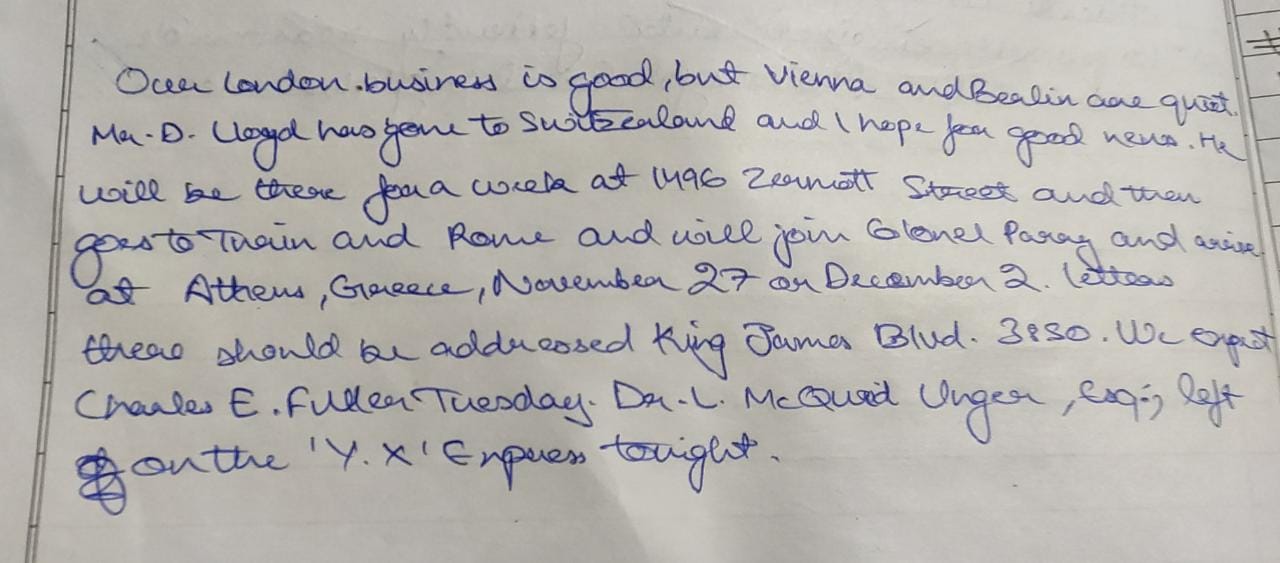 Our London business is good, but Vienna and Berlin are quiet.
Mr. D. Lloyd has gone to Switzerland and I hope for good news. He
will be there for a week at 1496 Zermott Street and then
goes to Turin and Rome and will join Colonel Parry and arrive
at Athens, Greece, November 27 or December 2. Letters
there should be addressed King James Blvd. 3580. We expect
Charles E. Fuller Tuesday. Dr. L. McQuaid Unger, Esq., left
on the 'Y.X' Express tonight.